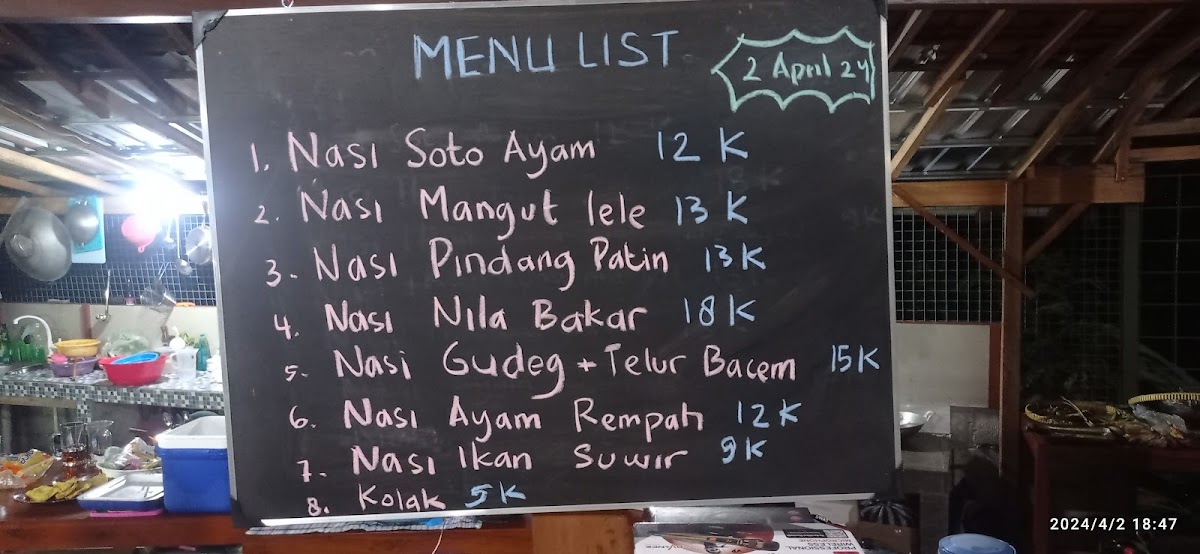 MENU LIST
2 April 24
1. Nasi Soto Ayam 12 K
2. Nasi Mangut lele 13 K
3. Nasi Pindang Patin 13K
4. Nasi Nila Bakar 18K
5. Nasi Gudeg + Telur Bacem 15K
6. Nasi Ayam Rempah 12K
7. Nasi Ikan Suwir 9K
8. Kolak 5K
PROFESSIONAL
WIRELESS
MICROPHONE
2024/4/2 18:47